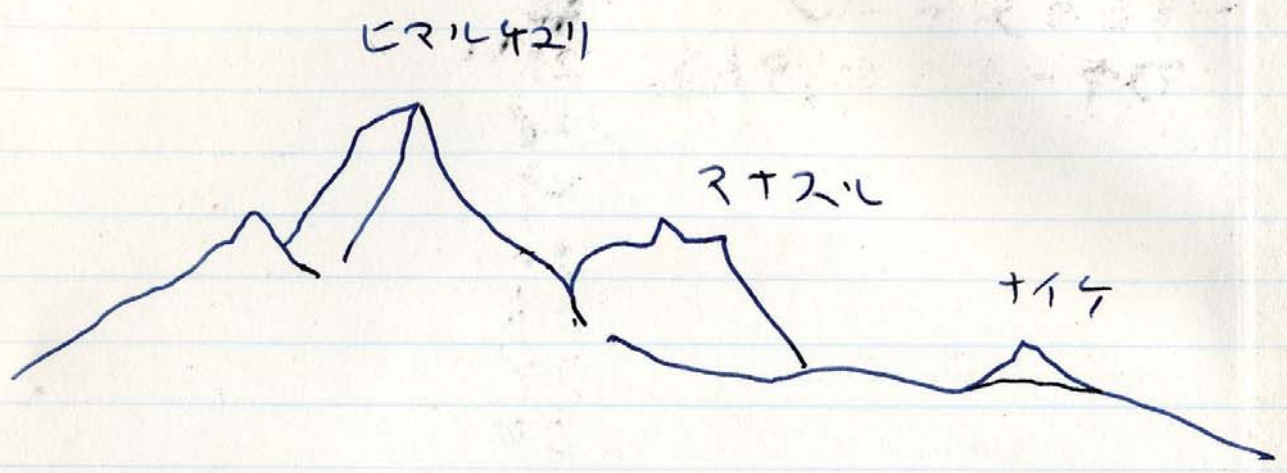 ヒマルチュリ
マナスル
ナイケ